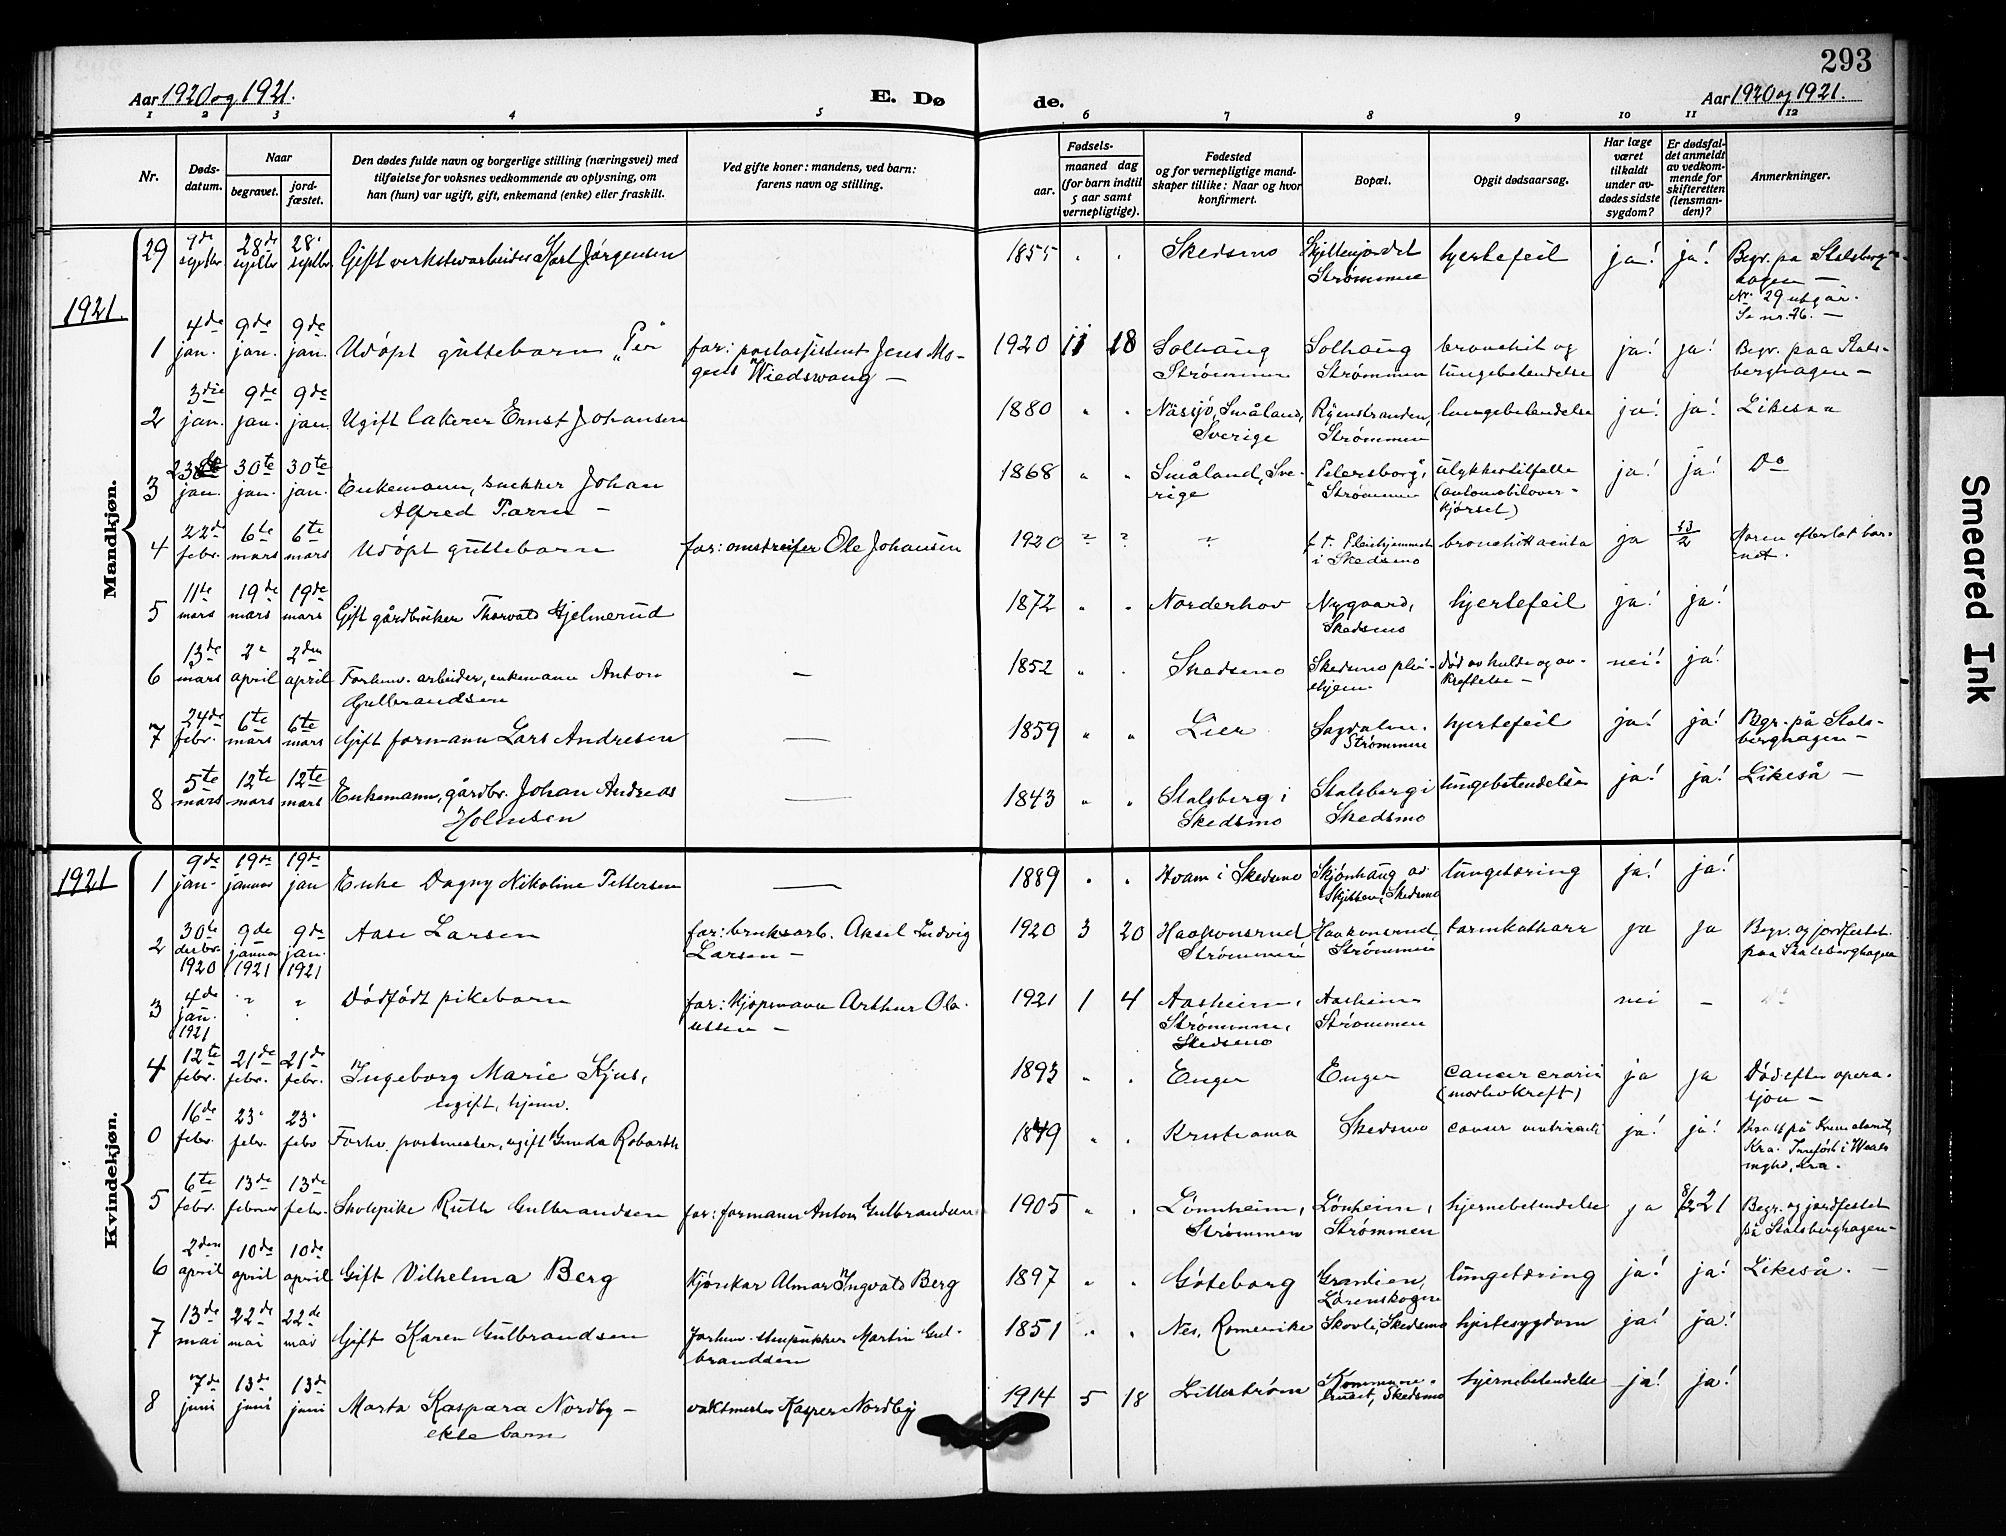 293
Aar 1920 og 1921. E. Dø de. Aar 1920 og 1921.
1 2 3 4 5 6 7 8 9 10 11 12
Nr.
Døds-
datum.
Naar
begravet.
jord-
fæstet.
Den dødes fulde navn og borgerlige stilling (næringsvei) med
tilføielse for voksnes vedkommende av oplysning, om
han (hun) var ugift, gift, enkemand (enke) eller fraskilt.
Ved gifte koner: mandens, ved barn:
farens navn og stilling.
Fødsels-
aar.
maaned dag
(for barn indtil
5 aar samt
vernepligtige).
Fødested
og for vernepligtige mand-
skaper tillike: Naar og hvor
konfirmert.
Bopæl.
Opgit dødsaarsag.
Har læge
været
tilkaldt
under av-
dødes sidste
sygdom?
Er dødsfal-
det anmeldt
av vedkom-
mende for
skifteretten
(lensman-
den)?
Anmerkninger.
Mandkjøn.
29 7de septbr. 28de septbr 28. septbr. Gift verkstedarbeider Karl Jørgensen 1855 " . Skedsmo Skjettenjordet Strømmen hjertefeil ja! ja! Begr. pa Stalsberg-
hagen —
Nr. 29 utgår.
Se nr. 26. —
1921.
1 4de jan. 9de jan. 9de jan. Udöpt guttebarn "Per" far: postassistent Jens Mo-
gens Wiedswang — 1920 11 18 Solhaug Strømmen Solhaug Strømmen bronchit og lungebetendelse ja! ja! Begr. paa Stals-
berghagen —
2 3die jan. 9de jan. 9de jan. Ugift lakerer Ernst Johansen 1880 " . Nässjö, Småland, Sverige Ryenstranden, Strømmen lungebetendelse ja! ja! Likesaa
3 jan. 30te jan. 30te jan. Enkemann, snekker Johan
Alfred Tarn — 1868 " " Småland, Sve-
rige "Petersborg", Strømmen ulykkestilfelle
(automobilover-
kjørsel) ja! ja! Do
4 22de febr. 6te mars 6te mars Udöpt guttebarn far: omstreifer Ole Johansen 1920 ? ? ? f. t. Pleiehjemmet
i Skedsmo bronchitt acuta ja 23/2 Moren efterlot bar-
net.
5 11te mars 19de mars 19de mars Gift gårdbruker Thorvald Hjelmerud 1872 " . Norderhov Nygaard, Skedsmo hjertefeil ja! ja!
6 13de mars 2. april 2den april Forhenv. arbeider, enkemann Anton
Gulbrandsen — 1852 " . Skedsmo Skedsmo plei-
ehjem. død av hulde og av-
kreftelse — nei! ja!
7 24de febr. 6te mars 6te mars Gift formann Lars Andresen — 1859 " " Lier Sagdalen. Strømmen hjertefeil ja! ja! Begr. på Stals-
berghagen —
8 5te mars 12te mars 12te mars Enkemann, gårdbr. Johan Andreas
Holmsen — 1843 " " Stalsberg i
Skedsmo Stalsberg i
Skedsmo lungebetendelse ja! ja! Likeså —
Kvindekjøn.
1921
1 9de jan. 19de januar 19de jan Enke Dagny Nikoline Pettersen — 1889 " . Hvam i Skedsmo Skjønhaug av
Skjetten, Skedsmo lungetæring ja! ja!
2 30te desbr. 1920 9de januar 1921 9de jan. 1921 Aase Larsen far: bruksarb. Aksel Ludvig
Larsen — 1920 3 20 Haakonsrud Strømmen Haakonsrud Strømmen tarmkatharr ja ja Begr. og jordfestet
paa Stalsberghagen
3 4de jan. 1921 " " Dødfødt pikebarn far: kjøpmann Arthur Ola-
ussen — 1921 1 4 Aasheim,
Strømmen,
Skedsmo Aasheim
Strømmen nei —
4 12te febr. 21de febr. 21de febr. Ingeborg Marie Kjus,
ugift, hjem. 1893 " . Enger Enger cancer ovarii
(moderkreft) ja ja Død efter opera-
sjon —
0 16de febr. 23. febr. 23. febr Forhv. postmester, ugift Gunda Robarth 1849 " . Kristiania Skedsmo cancer ventriculi ja! ja! Bisatt på Krematoriet,
Kra. Innført i Vaale-
mghd, Kra.
5 6te febr. 13de februar 13de febr. Skolepike Ruth Gulbrandsen far: formann Anton Gulbrandsen 1905 " . Lønnheim,
Strømmen Lønheim,
Strømmen hjernebetendelse ja 8/2 21 Begr. og jordfestet
på Stalsberghagen —
6 2den april 10de april 10de april Gift Vilhelma Berg kjørekar Almar Ingvald Berg 1897 " . Göteborg Grandien,
Lørenskogen lungetæring ja! ja! Likeså. —
7 13de mai 22de mai 22de mai Gift Karen Gulbrandsen forhenv. stenpukker Martin Gul-
brandsen 1851 " . Nes, Romerike Skovli, Skedsmo hjertesygdom ja! ja!
8 7de juni 13de juni 13de juni Marta Kaspara Nordby —
ekte barn vaktmester Kasper Nordby 1914 5 18 Lillestrøm Kommune-
huset, Skedsmo hjernebetendelse ja! ja!
Smeared Ink